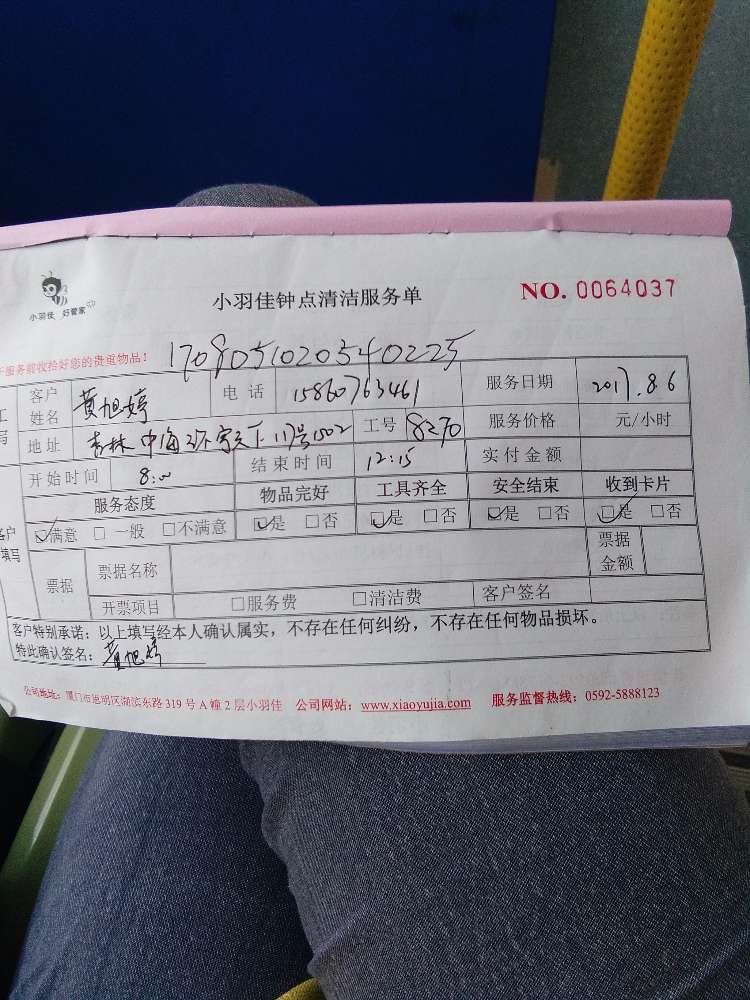 小羽佳 好管家
小羽佳钟点清洁服务单
NO. 0064037
服务前收拾好您的贵重物品！
17080510203540225
客户姓名 黄旭婷 电话 15860763461 服务日期 2017.8.6
地址 杏林中海 117号1502 工号 8270 服务价格 元/小时
开始时间 8:00 结束时间 12:15 实付金额
服务态度 物品完好 工具齐全 安全结束 收到卡片
☑满意 □一般 □不满意 ☑是 □否 ☑是 □否 ☑是 □否 ☑是 □否
客户填写
票据 票据名称 票据金额
开票项目 □服务费 □清洁费 客户签名
客户特别承诺：以上填写经本人确认属实，不存在任何纠纷，不存在任何物品损坏。
特此确认签名：黄旭婷
公司地址：厦门市思明区湖滨东路 319 号 A 幢 2 层小羽佳 公司网站：www.xiaoyujia.com 服务监督热线：0592-5888123